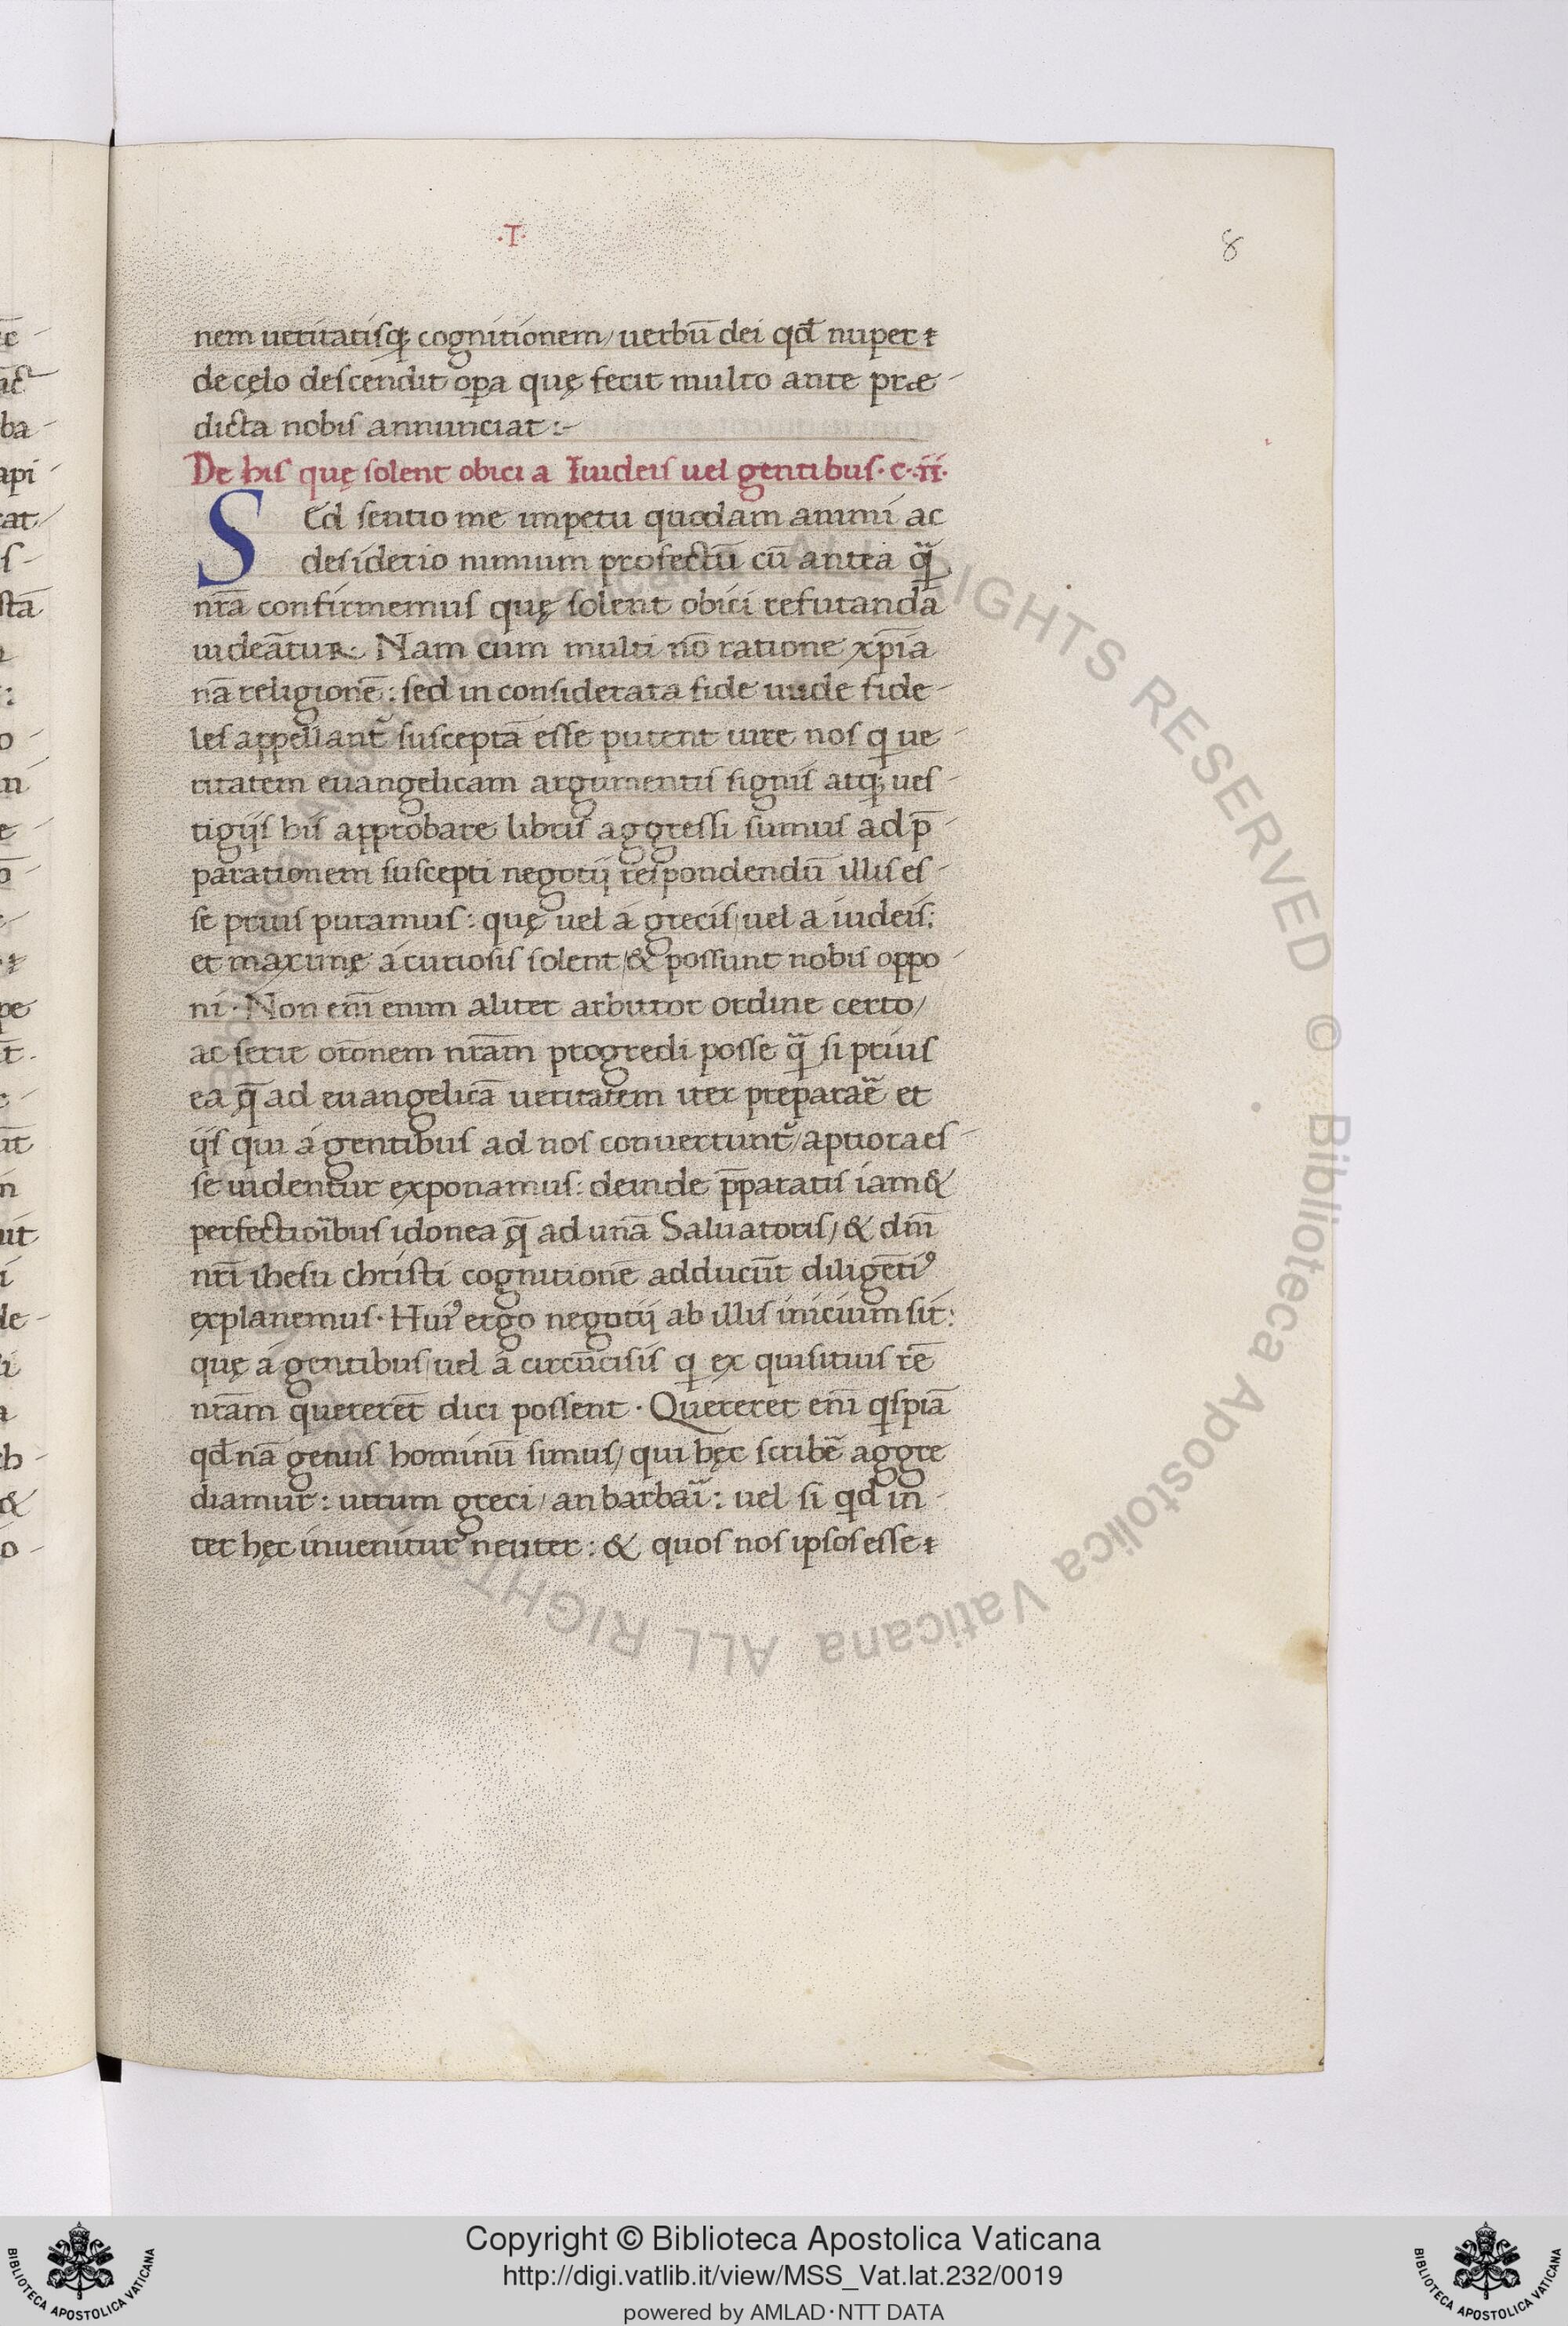 ·I·
8
nem ueritatisq; cognitionem/ uerbū dei qd̄ nuper
de cęlo descendit oꝑa quę fecit multo ante præ-
dicta nobis annunciat:-
De his quę solent obici a Iudeis uel gentibus·c·ii·
SEd sentio me impetu quodam animi ac
desiderio nimium profectū cū antea q̄
nrā confirmemus quę solent obici refutanda
uideātur: Nam cum multi nō ratione xp̄ia
nā religionē: sed in considerata fide unde fide-
les appellant᷑ susceptā esse putent iure nos q ue-
ritatem euangelicam argumentis signis atq; ues-
tigijs his approbare libris aggressi sumus ad p̄-
parationem suscepti negotij respondendū illis es-
se prius putamus: quę uel á grecis/ uel a iudeis:
et maxime á curiosis solent/ & possunt nobis oppo-
ni· Non em̄ enim aliter arbitror ordine certo/
ac serie orōnem nrām progredi posse q̄ si prius
ea q̄ ad euangelicā ueritatem iter preparaē et
ijs qui á gentibus ad nos conuertunt᷑/ aptiora es-
se uidentur exponamus: deinde p̄paratis iam &
perfectioībus idonea q̄ ad unā Saluatoris/ & dn̄i
nrī ihesu christi cognitionē adducūt diligētiꝰ
explanemus· Huiꝰ ergo negotij ab illis inicium sit:
quę á gentibus/ uel á circūcisis q ex quisitius rē
nrām quererēt dici possent· Quereret eni̅ qspiā
qd̄ nā genus hominū simus/ qui hęc scribē aggre
diamur: utrum greci/ an barbaī: uel si qd̄ in-
ter hęc inuenitur neuter: & quos nos ipsos esse
Copyright © Biblioteca Apostolica Vaticana
http://digi.vatlib.it/view/MSS_Vat.lat.232/0019
powered by AMLAD·NTT DATA